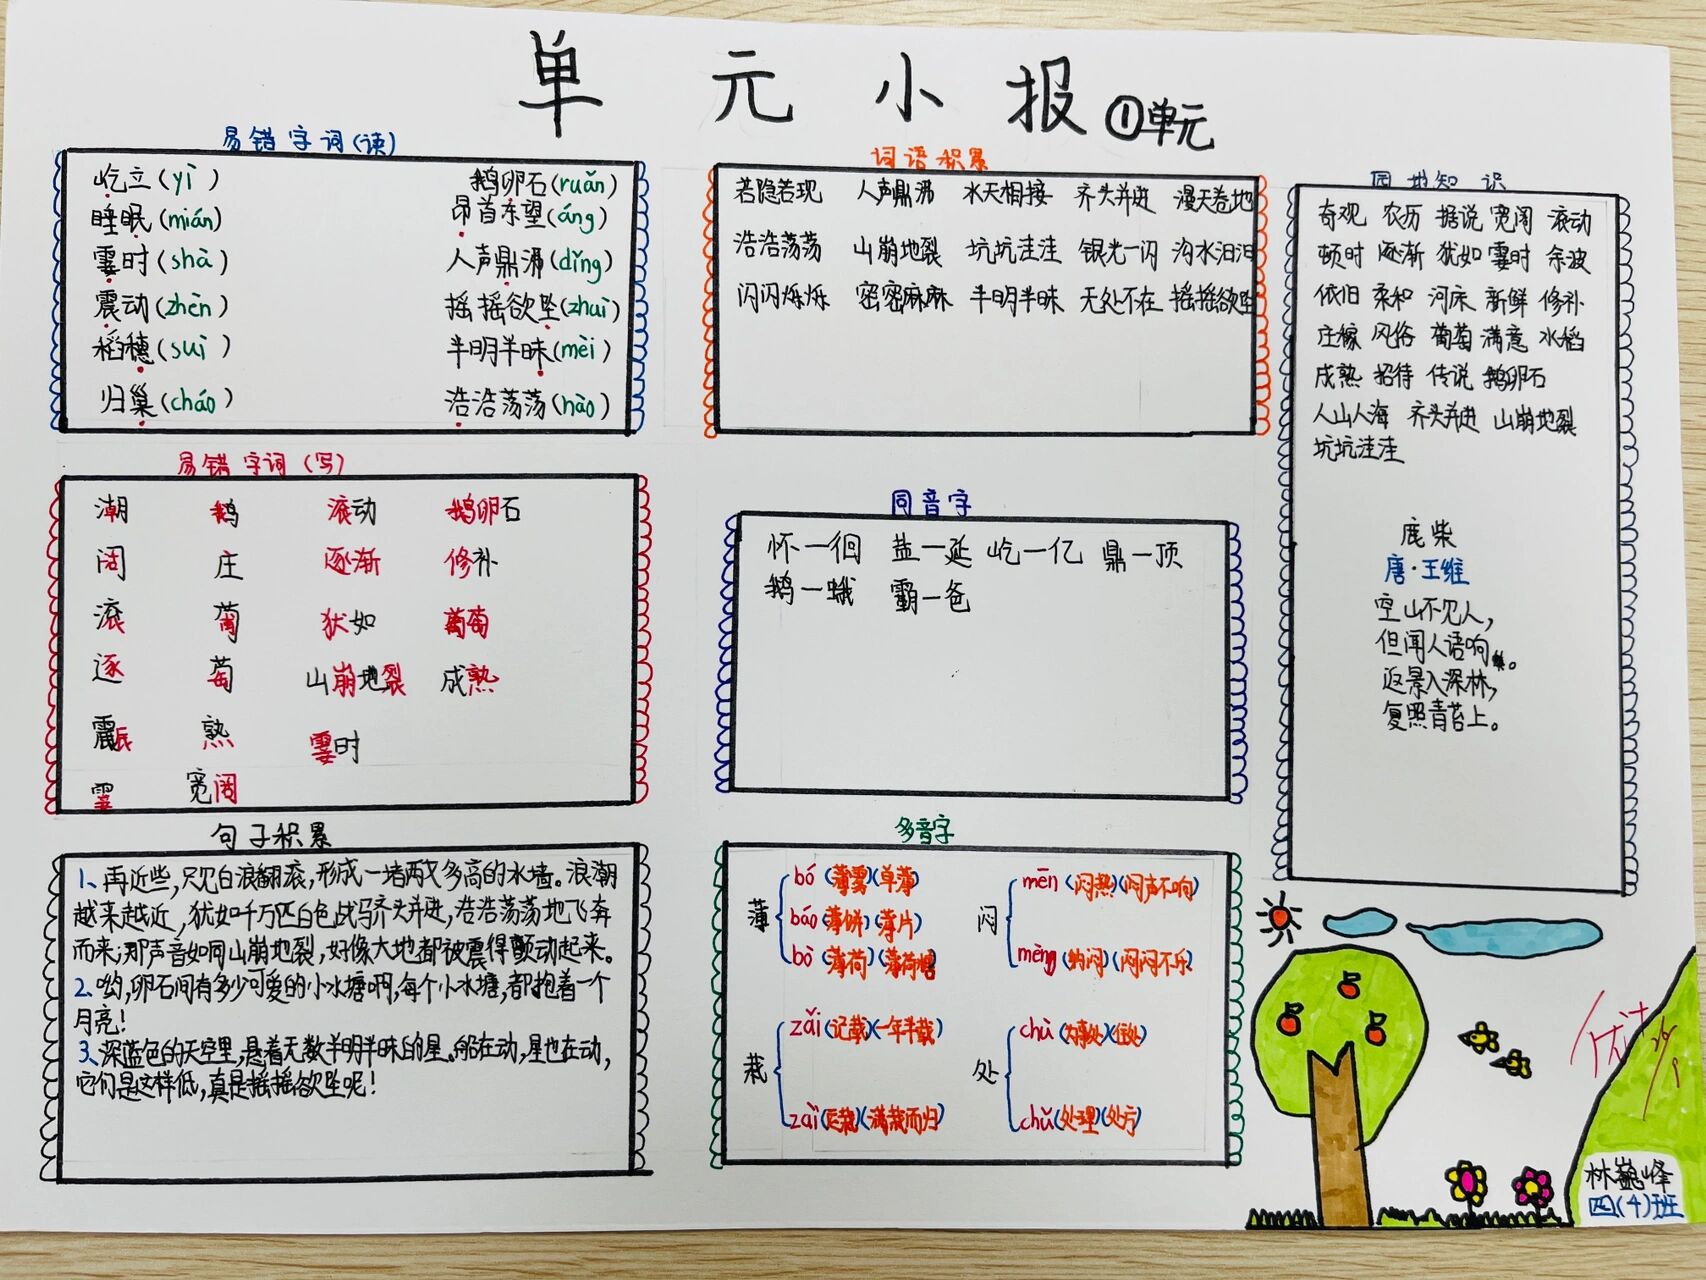 单元小报①单元
易错字词(读)
屹立(yì)
鹅卵石(ruǎn)
睡眠(mián)
昂首东望(áng)
霎时(shà)
人声鼎沸(dǐng)
震动(zhèn)
摇摇欲坠(zhuì)
稻穗(suì)
半明半昧(mèi)
归巢(cháo)
浩浩荡荡(hào)
易错字词(写)
潮 鹅 滚动 鹅卵石
阔 庄 逐渐 修补
滚 葡 犹如 葡萄
逐 萄 山崩地裂 成熟
震 熟 霎时
霎 宽阔
句子积累
1、再近些,只见白浪翻滚,形成一堵两丈多高的水墙。浪潮
越来越近,犹如千万匹白色战马齐头并进,浩浩荡荡地飞奔
而来;那声音如同山崩地裂,好像大地都被震得颤动起来。
2、哟,卵石间有多少可爱的小水塘啊,每个小水塘,都抱着一个
月亮!
3、深蓝色的天空里,悬着无数半明半昧的星。船在动,星也在动,
它们是这样低,真是摇摇欲坠呢!
词语积累
若隐若现 人声鼎沸 水天相接 齐头并进 漫天卷地
浩浩荡荡 山崩地裂 坑坑洼洼 银光一闪 沟水汨汨
闪闪烁烁 密密麻麻 半明半昧 无处不在 摇摇欲坠
同音字
怀一徊 盐一延 屹一亿 鼎一顶
鹅一蛾 霸一爸
多音字
薄
bó(薄雾)(单薄)
báo(薄饼)(薄片)
bò(薄荷)(薄荷糖)
闷
mēn(闷热)(闷声不响)
mèng(纳闷)(闷闷不乐)
栽
zǎi(记载)(一年半载)
zài(满栽而归)
处
chù
chǔ(处理)(处方)
园地知识
奇观 农历 据说 宽阔 滚动
顿时 逐渐 犹如 霎时 余波
依旧 柔和 河床 新鲜 修补
庄稼 风俗 葡萄 满意 水稻
成熟 招待 传说 鹅卵石
人山人海 齐头并进 山崩地裂
坑坑洼洼
鹿柴
唐·王维
空山不见人,
但闻人语响。
返景入深林,
复照青苔上。
林巍峰
四(4)班